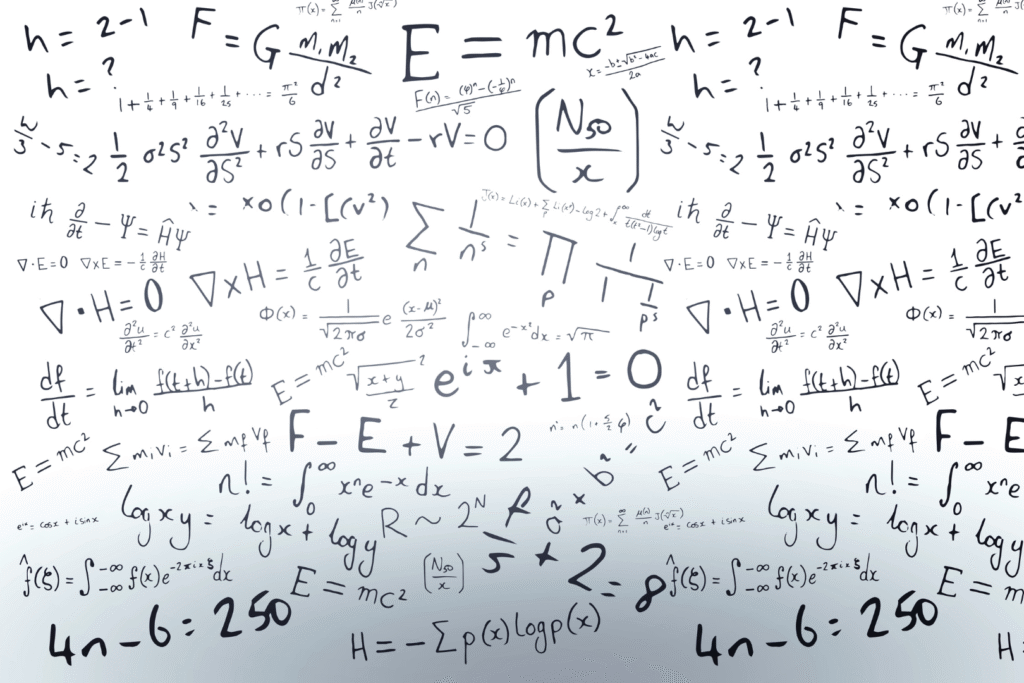 h = 2 - 1
F = G m₁m₂/d²
π(x) = ∑ μ(n)/n J(ⁿ√x)
E = mc²
x = -b ± √b² - 4ac / 2a
h = 2 - 1
F = G m₁m₂/d²
h = ?
1 + 1/4 + 1/9 + 1/16 + 1/25 + ... = π²/6
F(n) = (φ)ⁿ - (-1/φ)ⁿ / √5
(N₅₀/x)
h = ?
1 + 1/4 + 1/9 + 1/16 + 1/25 + ... = π²/6
- 5 = 2
1/2 σ²S² ∂²V/∂S² + rS ∂V/∂S + ∂V/∂t - rV = 0
- 5 = 2
1/2 σ²S² ∂²V/∂S² + rS ∂V/∂S +
iħ ∂/∂t - Ψ = ĤΨ
= xo(1-[(v²)
∑ₙ 1/nˢ = ∏ₚ 1 / 1 1/pˢ
iħ ∂/∂t - Ψ = ĤΨ
= xo(1-[(v²
∇·E = 0
∇xE = - 1/c ∂H/∂t
∇·E = 0
∇xE = - 1/c ∂H/∂t
∇·H = 0
∇xH = 1/c ∂E/∂t
Φ(x) = 1/√2πσ e (x-μ)²/2σ²
∫ -∞ ∞ e^-x² dx = √π
∇·H = 0
∇xH = 1/c ∂E/∂t
Φ(x) = 1/√2πσ
∂²u/∂t² = c² ∂²u/∂x²
∂²u/∂t² = c² ∂²u/∂x²
df/dt = lim h→0 f(t+h) - f(t) / h
E = mc²
√x+y / z ²
e^iπ + 1 = 0
df/dt = lim h→0 f(t+h) - f(t) / h
E = mc²
E = mc²
∑ mᵢvᵢ = ∑ mf vf
F - E + V = 2
a² + b² = c²
E = mc²
∑ mᵢvᵢ = ∑ mf vf
F - E
n! = ∫ 0 ∞ xⁿe^-x dx
n! = ∫ 0 ∞ xⁿe
e^ix = cosx + i sinx
log xy = log x + log y
R ~ 2ᴺ
π(x) = ∑ n=1 ∞ μ(n)/n J(ⁿ√x)
e^ix = cosx + i sinx
log xy = log x + log y
f̂(ξ) = ∫ -∞ -∞ f(x)e^-2πixξ dx
E = mc²
(N₅₀/x)
5 + 2 = 8
f̂(ξ) = ∫ -∞ -∞ f(x)e^-2πixξ dx
E = m
4n - 6 = 250
H = - ∑ p(x) log p(x)
4n - 6 = 250
H =